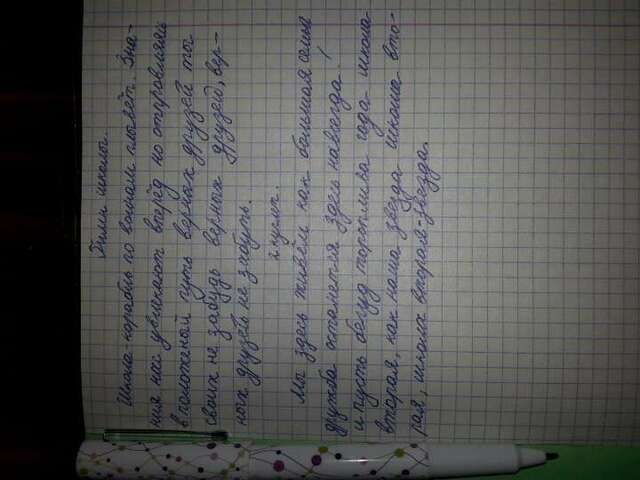 Гимн школы.
Школа корабль по волнам плывёт. Зна-
ния нас увлекают вперёд но отправляясь
в положеный путь верных друзей ты
своих не забудь верных друзей, вер-
ных друзей не забудь.
2 купл.
Мы здесь живём как большая семья
дружба останется здесь навсегда!
и пусть бегут торопливо года школа
вторая, как наша звезда школа вто-
рая, школа вторая-звезда.